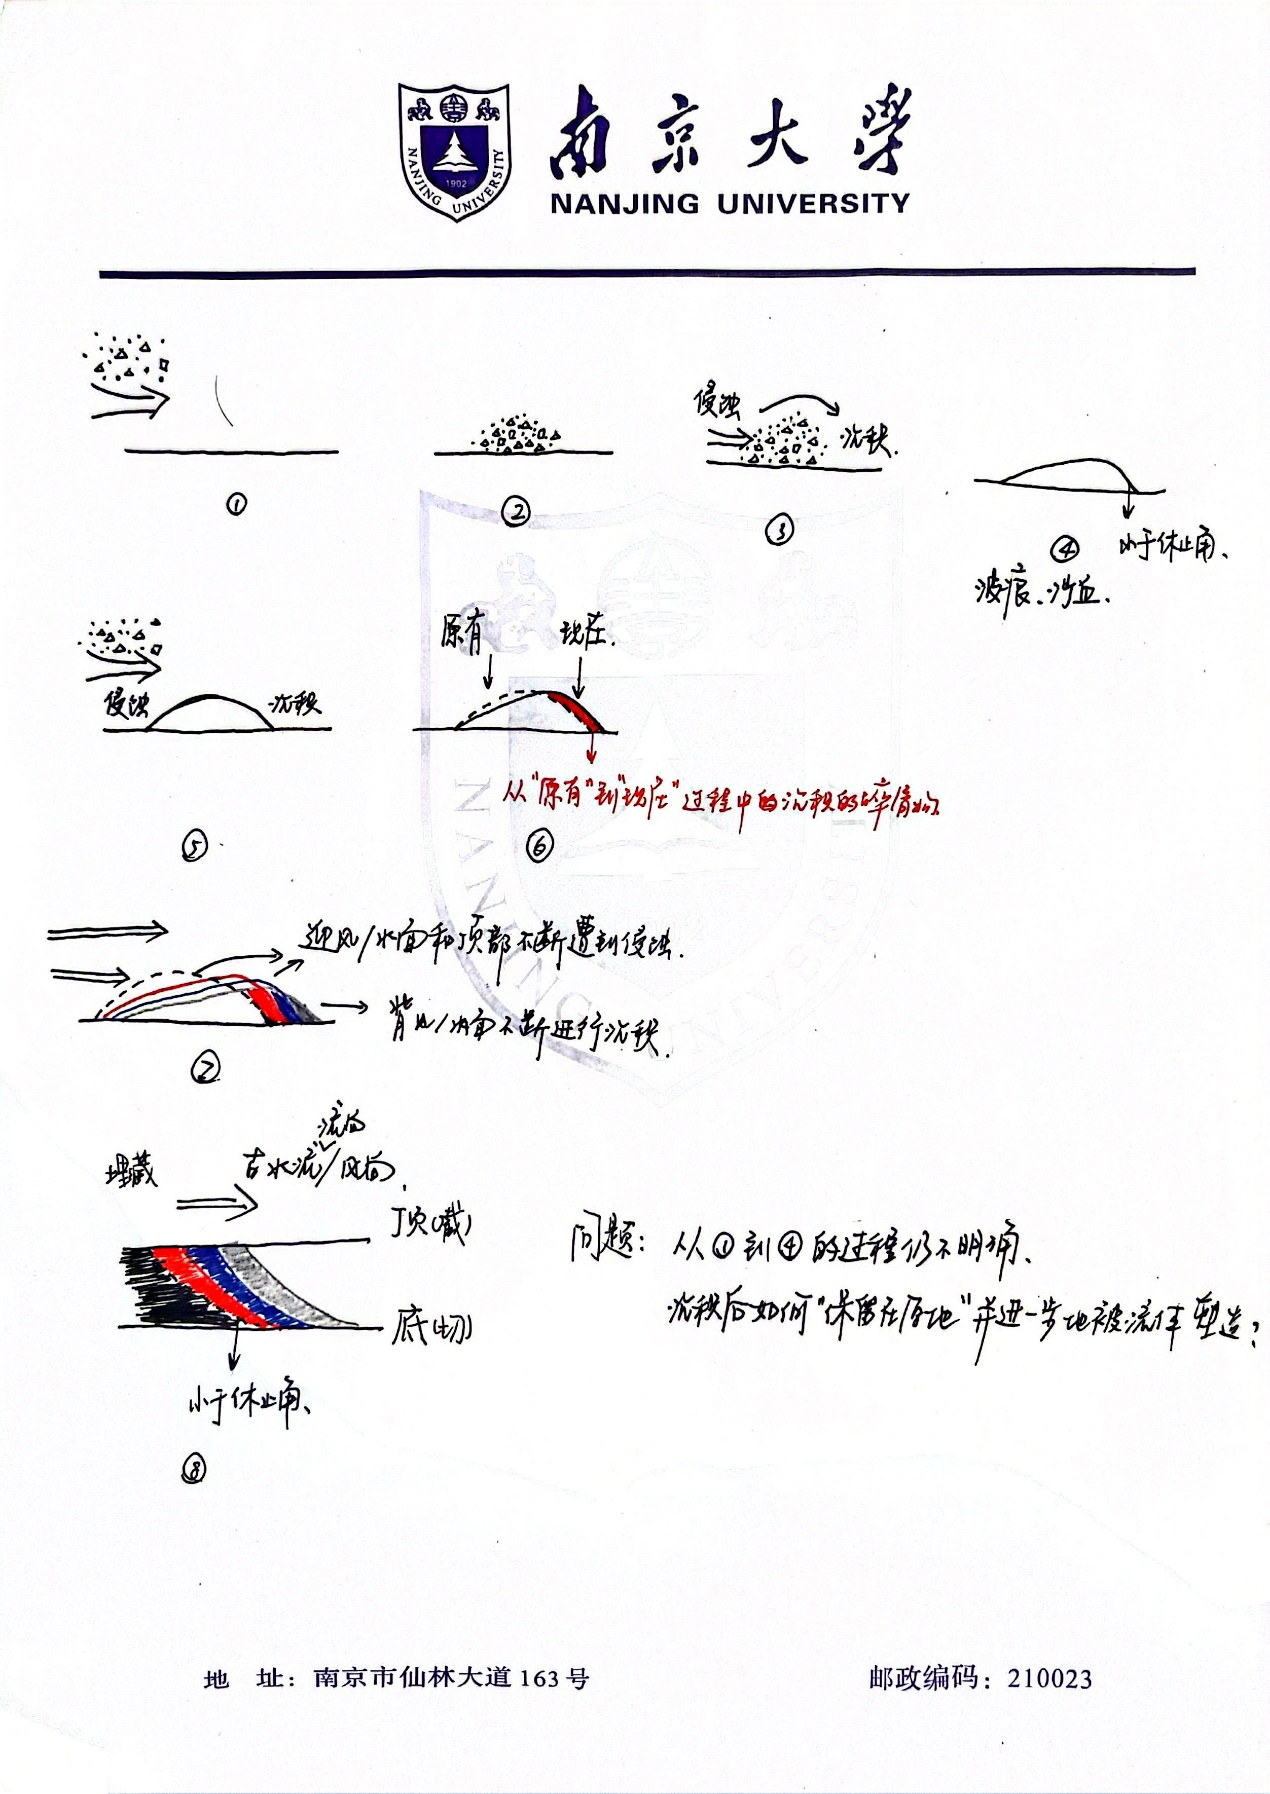 南京大學
NANJING UNIVERSITY
NANJING UNIVERSITY
1902
①
②
侵蚀
沉积.
③
④
小于休止角、
波痕、沙丘.
侵蚀
沉积
⑤
原有
现在.
从"原有"到"现在"过程中的沉积的碎屑物
⑥
迎风/水面和顶部不断遭到侵蚀.
背风/水面不断进行沉积.
⑦
埋藏
流向
古水流/风向.
顶(截)
底(切)
小于休止角、
⑧
问题: 从①到④的过程仍不明确、
沉积后如何"保留在原地"并进一步地被流体塑造?
地 址: 南京市仙林大道 163 号
邮政编码: 210023